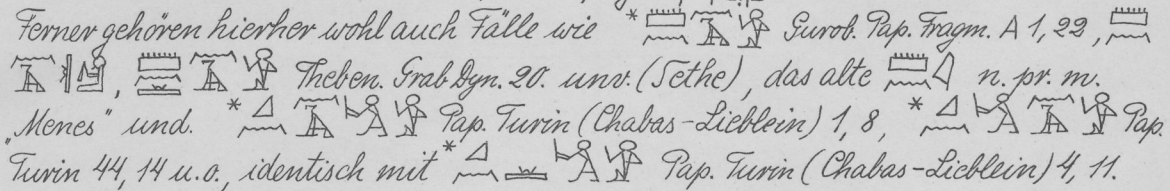 Ferner gehören hierher wohl auch Fälle wie * Gurob. Pap. Fragm. A 1, 22,
, Theben. Grab Dyn. 20. unv. (Sethe), das alte n. pr. m.
„Menes" und. * Pap. Turin (Chabas-Lieblein) 1, 8, * Pap.
Turin 44, 14 u. o., identisch mit * Pap. Turin (Chabas-Lieblein) 4, 11.